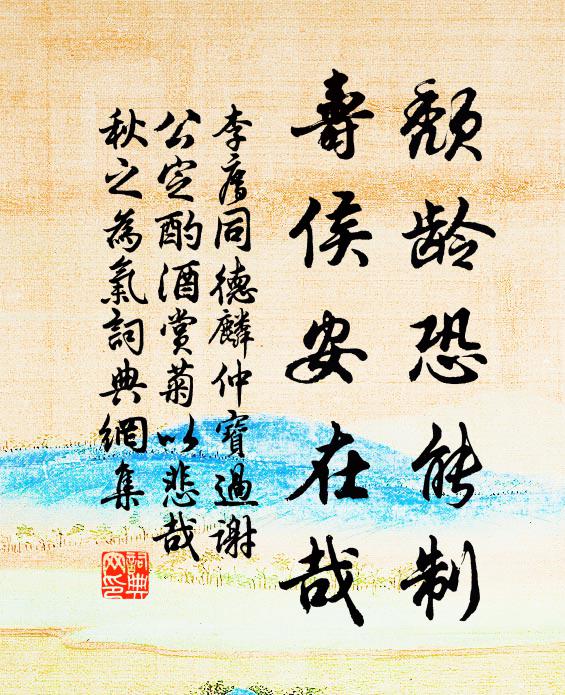 頹龄恐能制
壽侯安在哉
李廌同德麟仲寶過谢
公定酌酒赏菊以悲哉
秋之為氣詞典網集
詞典
网印